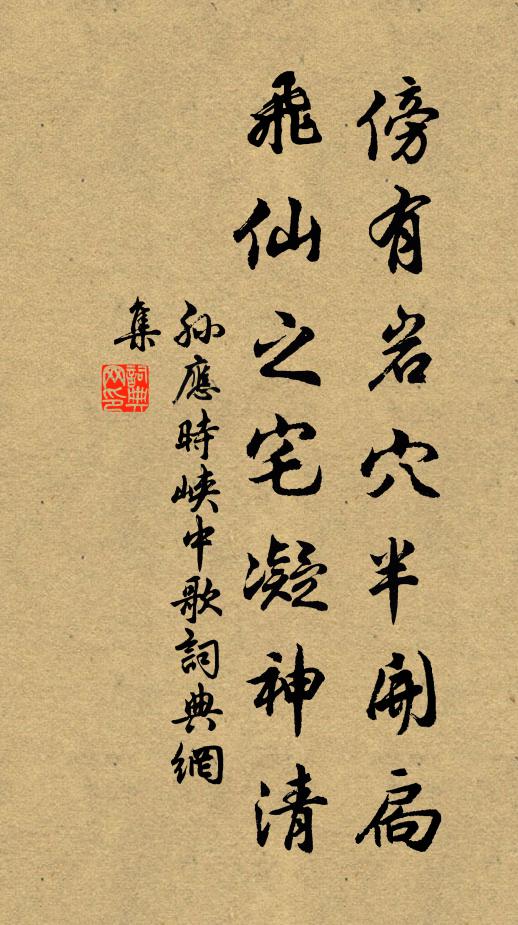 傍有岩穴半開扃
飛仙之宅凝神清
孫應時峽中歌詞典網
集
詞典網印